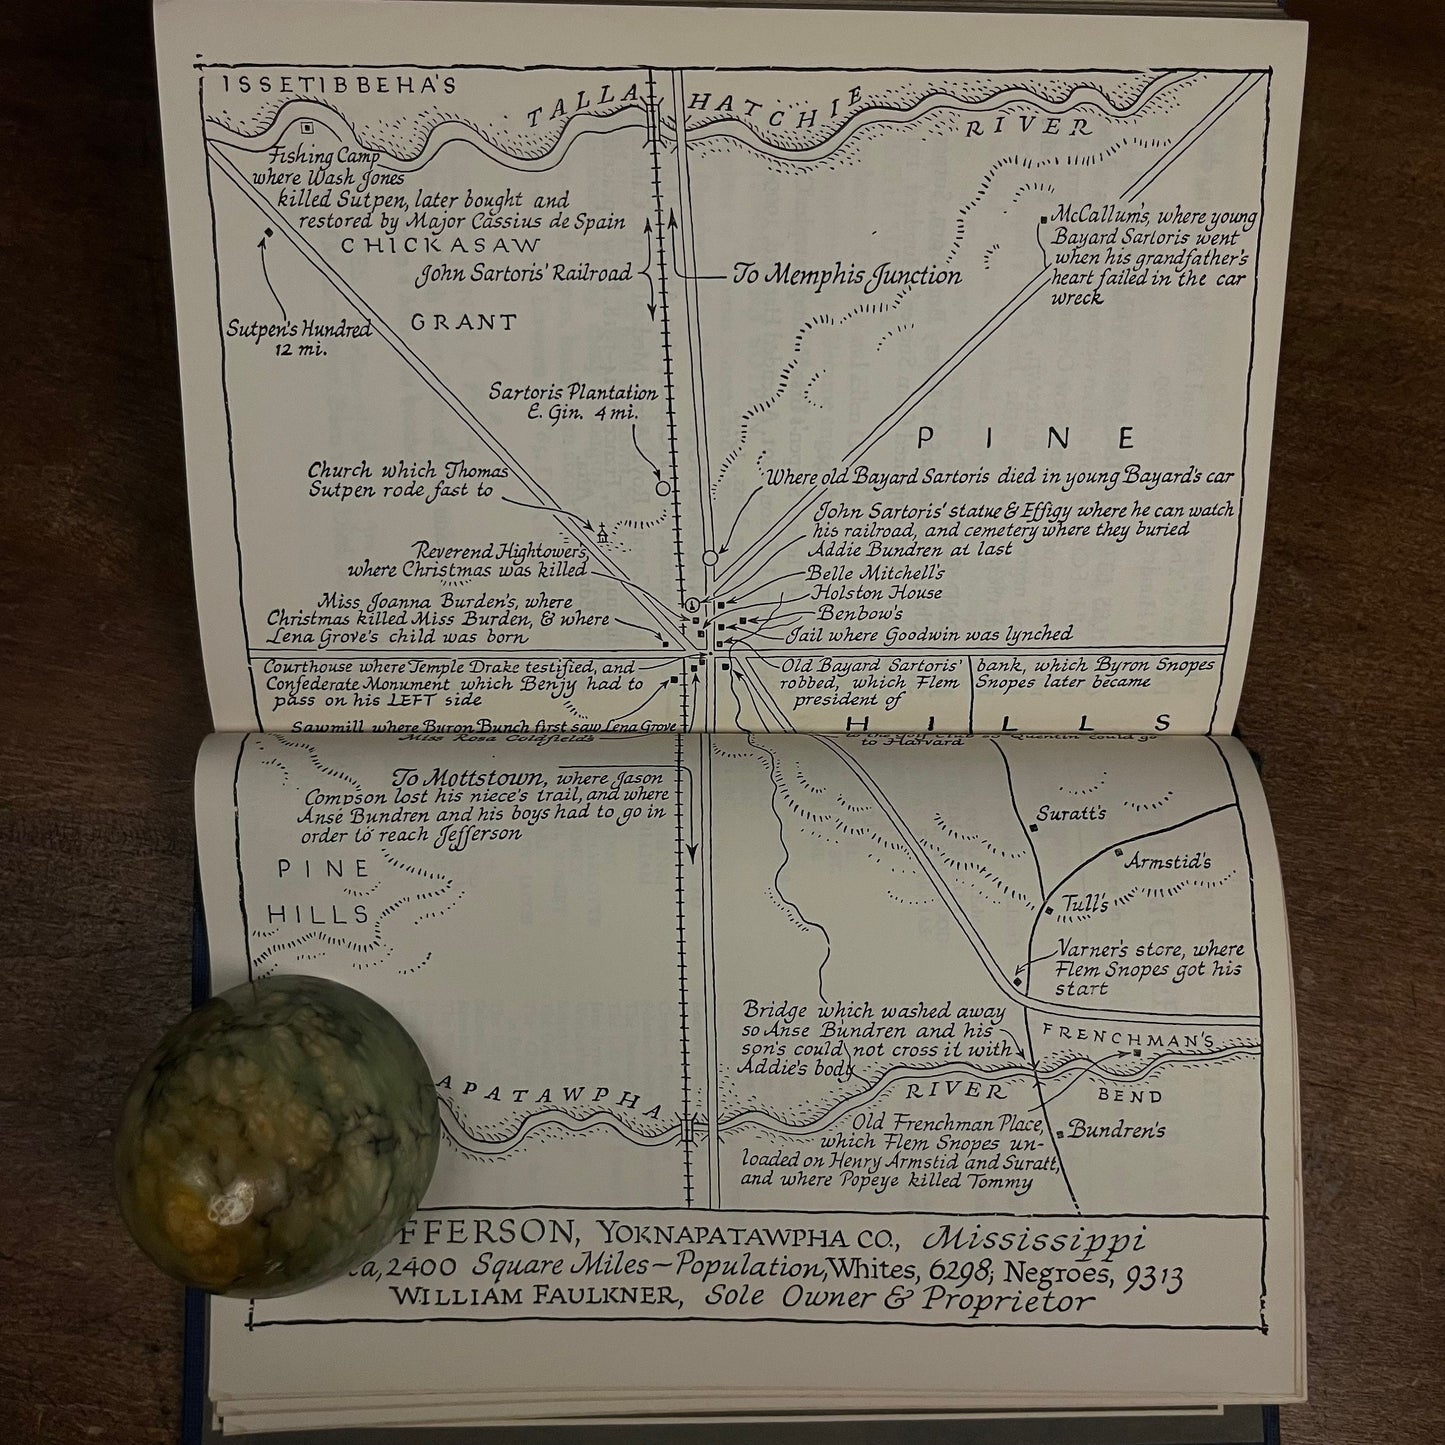 ISSETIBBEHA'S
TALLAHATCHIE
RIVER
Fishing Camp
where Wash Jones
killed Sutpen, later bought and
restored by Major Cassius de Spain
CHICKASAW
John Sartoris' Railroad
To Memphis Junction
McCallum's, where young
Bayard Sartoris went
when his grandfather's
heart failed in the car
wreck
Sutpen's Hundred
12 mi.
GRANT
Sartoris Plantation
E. Gin. 4 mi.
PINE
Church which Thomas
Sutpen rode fast to
Where old Bayard Sartoris died in young Bayard's car
John Sartoris' statue & Effigy where he can watch
his railroad, and cemetery where they buried
Addie Bundren at last
Reverend Hightower's,
where Christmas was killed
Belle Mitchell's
Holston House
Benbow's
Jail where Goodwin was lynched
Miss Joanna Burden's, where
Christmas killed Miss Burden, & where
Lena Grove's child was born
Courthouse where Temple Drake testified, and
Confederate Monument which Benjy had to
pass on his LEFT side
Old Bayard Sartoris' bank, which Byron Snopes
robbed, which Flem Snopes later became
president of
HILLS
Sawmill where Byron Bunch first saw Lena Grove
Miss Rosa Coldfield's
to the golf club so Quentin could go
to Harvard
To Mottstown, where Jason
Compson lost his niece's trail, and where
Anse Bundren and his boys had to go in
order to reach Jefferson
PINE
HILLS
Suratt's
Armstid's
Tull's
Varner's store, where
Flem Snopes got his
start
Bridge which washed away
so Anse Bundren and his
son's could not cross it with
Addie's body
FRENCHMAN'S
BEND
APATAWPHA
RIVER
Old Frenchman Place,
which Flem Snopes un-
loaded on Henry Armstid and Suratt,
and where Popeye killed Tommy
Bundren's
FFERSON, YOKNAPATAWPHA CO., Mississippi
ea, 2400 Square Miles—Population, Whites, 6298; Negroes, 9313
WILLIAM FAULKNER, Sole Owner & Proprietor